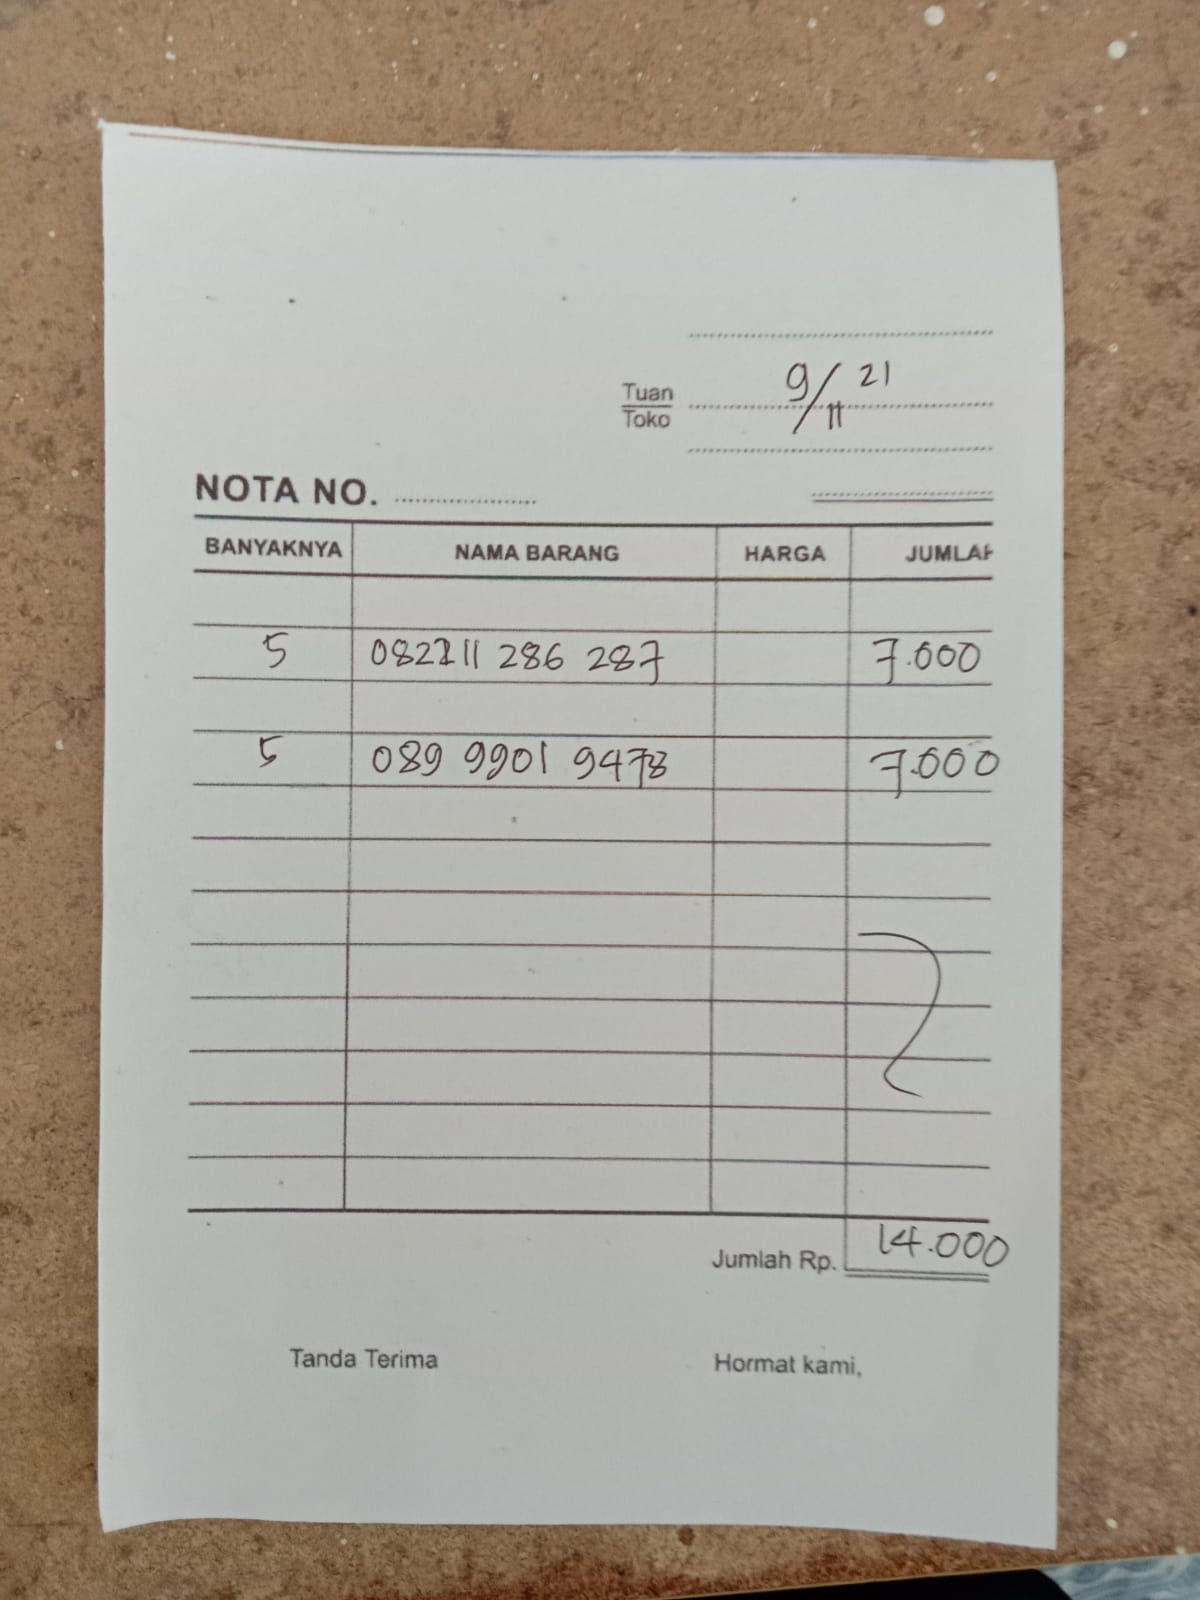 9/11 21
Tuan
Toko
NOTA NO. ....................
BANYAKNYA NAMA BARANG HARGA JUMLAH
5 082211 286 287 7.000
5 089 9901 9478 7.000
Jumlah Rp. 14.000
Tanda Terima Hormat kami,